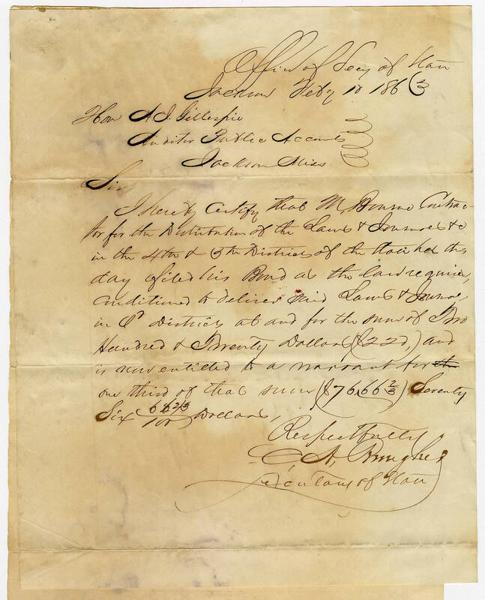 Office of Secy of State
Jackson Feby 10 1863
Hon A. J. Gillespie
Auditor Public Accounts
Jackson Miss
Sir
I hereby Certify that M, Contrac-
tor for the Distribution of the Laws & Journals &c
in the 4th & 5th Districts of the State has this
day filed his Bond as the law requires,
Conditioned to deliver said Laws & Journals,
in Districts at and for the sum of Two
Hundred & Twenty Dollars ($22) and
is now entitled to a warrant for the
one third of that sum ($76.66 2/3) Seventy
Six 66 2/3/100 Dollars,
Respectfully
C A, Brougher
Secretary of State